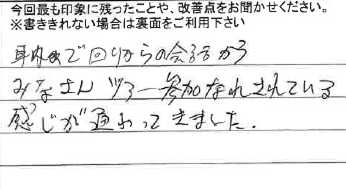 今回最も印象に残ったことや、改善点をお聞かせください。
※書ききれない場合は裏面をご利用下さい
車内で回りからの会話から
みなさんツアー参加なれされている
感じが通わってきました.